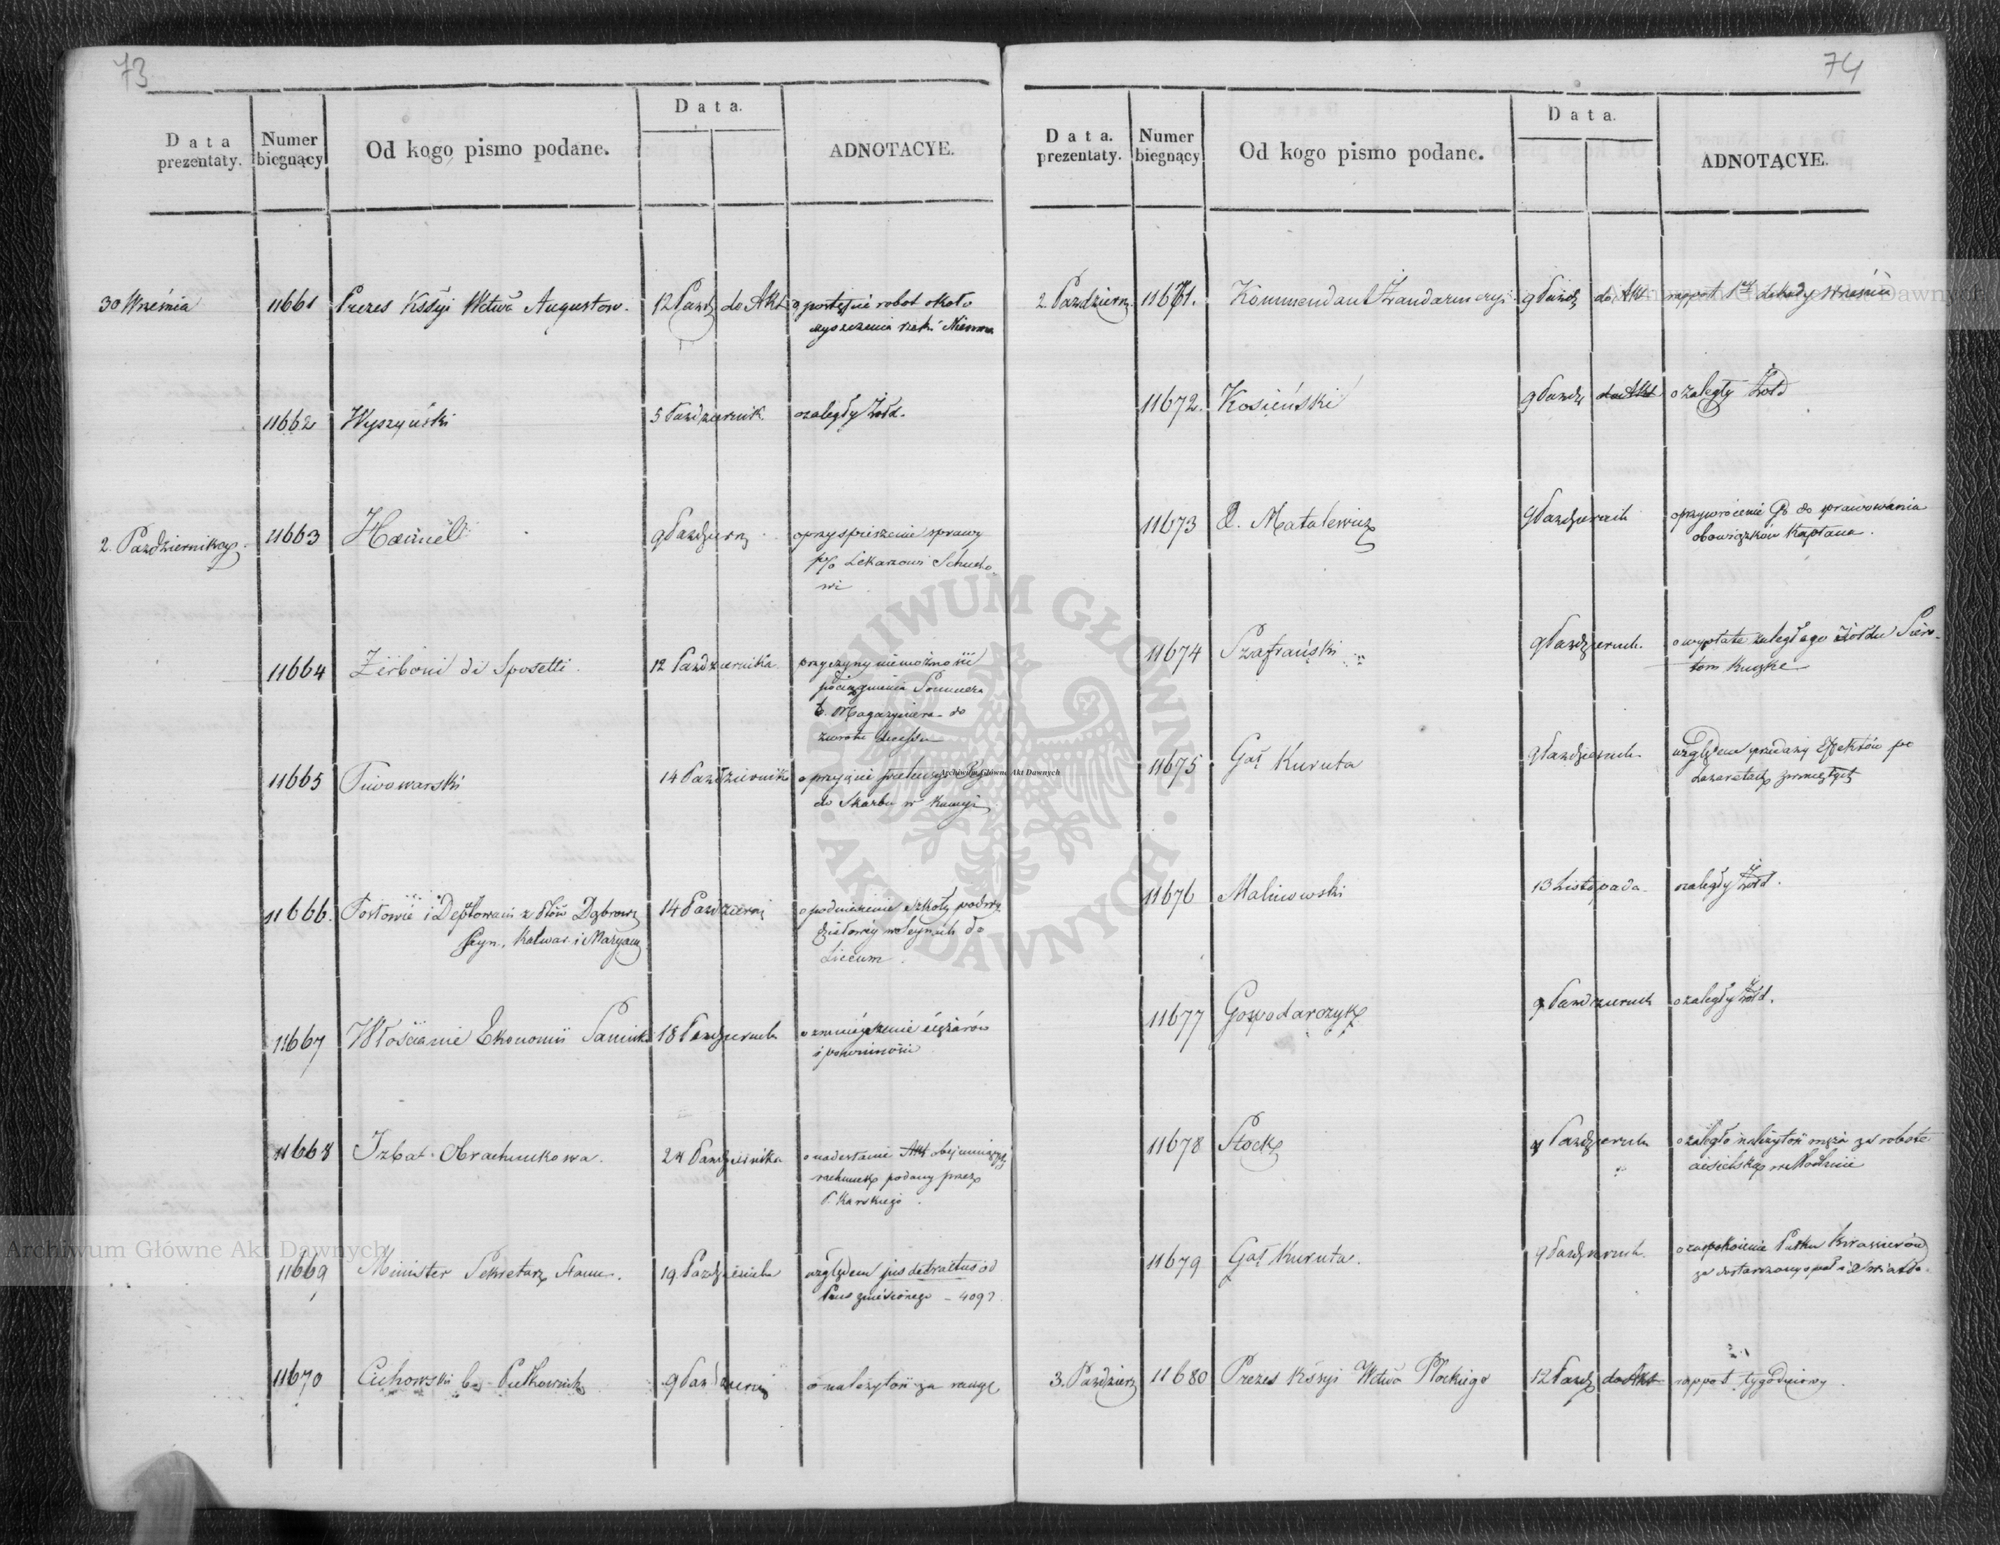 73
Data prezentaty. Numer biegnący Od kogo pismo podane. Data. ADNOTACYE.
30 Września 11661 Prezes Kssyi Wctwa Augustow. 12 Pazdz do Akt o postępie robot około
czyszczenia rzeki Niemna
11662 Wyszyński 5 Pazdziernik o zaległy żołd.
2. Październik 11663 9 Pazdziern o przyspieszenie sprawy
p/o Lekarzowi
11664 Zerboni di Sposetti 12 Pazdziernika przyczyny niemożności
pociągnienia
b. Magazyniera do
zwrotu
11665 Piwowarski 14 Pazdziernika o przyjęcie
do Skarbu w
11666. Posłowie i Deputowani z Ptów Dąbrows 14 Pazdziern o podniesienie szkoły podwy
działowej w Seynach do
Seyn. Kalwar. i Maryam
Liceum.
11667 Włościanie Ekonomii 18 Pazdziernik o zmniejszenie ciężarów
i powinności
11668 Izba Obrachunkowa. 24 Pazdziernika o nadesłanie Akt obejmujących
rachunek podany przez
P. Karskiego
11669 Minister Sekretarz Stanu. 19 Pazdziernik względem jus detractus od
11670 Cichowski b. Pułkownik 9 Pazdziern o należytość za rangę
74
Data. prezentaty. Numer biegnący Od kogo pismo podane. Data. ADNOTACYE.
2. Pazdziern 11671. Kommendant Żandarmeryi 9 Pazdz do Akt rapport 1ej dekady Września
11672. Kosieński 9 Pazdz do Akt o zaległy żołd
11673 X. Matalewicz 9 Pazdziernik o przywrócenie Go do sprawowania
obowiązków Kapłana.
11674 Szafrański 9 Pazdziernik. o wypłatę zaległego żołdu Siero-
tom
11675 Gał Kuruta 9 Pazdziernik. względem przedaży Effektów po
Lazaretach
11676 Malinowski 13 Listopada. o zaległy żołd.
11677 Gospodarczyk 9 Pazdziernik o zaległy żołd.
11678 Stock 9 Pazdziernik o zaległą należytość męża za robotę
ciesielską w Modlinie
11679 Gał Kuruta. 9 Pazdziernik. o zaspokojenie Pułku Kirassierów
za dostarczony opał i światło.
3. Pazdziern 11680 Prezes Kssyi Wctwa Płockiego 12 Pazdz do Akt rapport tygodniowy.
ARCHIWUM GŁÓWNE AKT DAWNYCH
Archiwum Główne Akt Dawnych
Archiwum Główne Akt Dawnych
Archiwum Główne Akt Dawnych